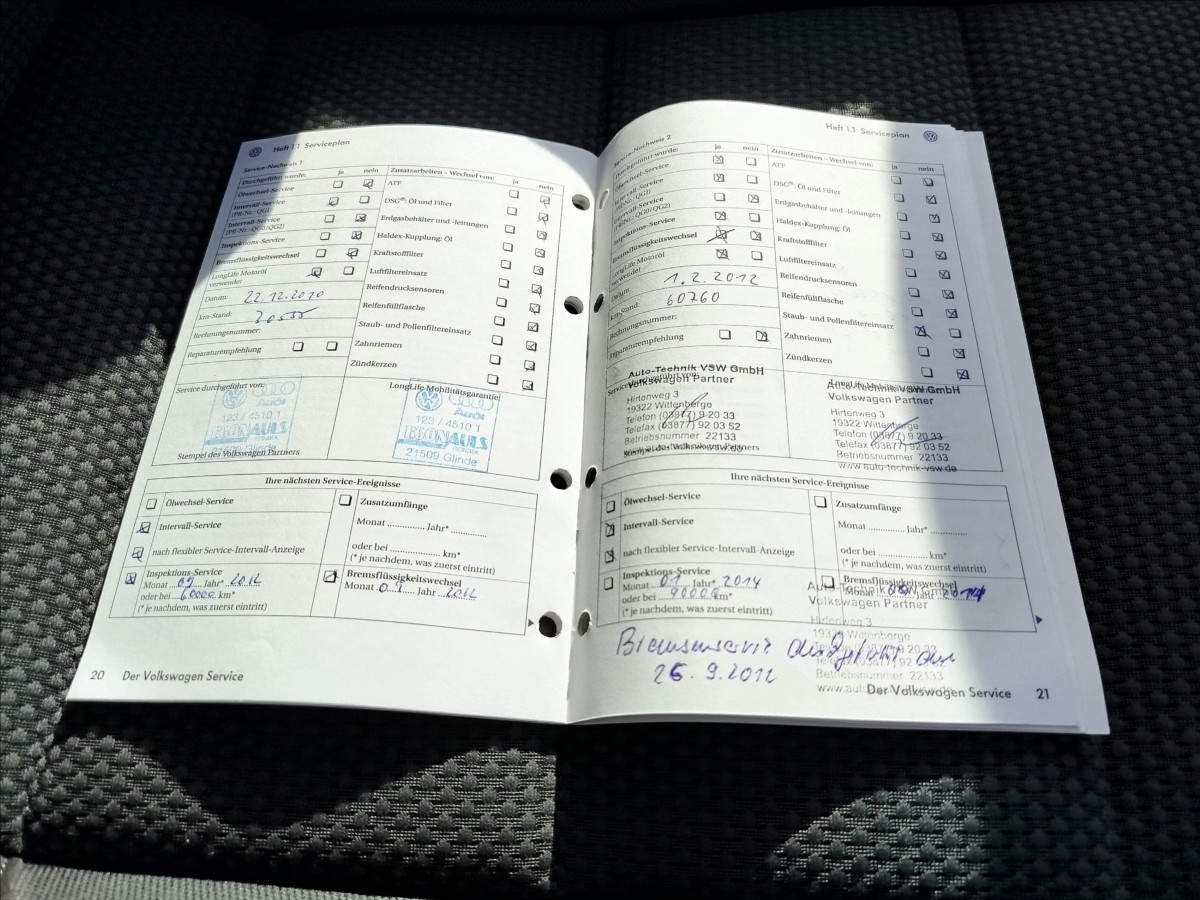 Heft 1.1 Serviceplan
Service-Nachweis 1
Durchgeführt wurde: ja nein
Ölwechsel-Service
Intervall-Service
(PR-Nr.: QG1)
Intervall-Service
(PR-Nr.: QG0/QG2)
Inspektions-Service
Bremsflüssigkeitswechsel
LongLife Motoröl
verwendet
Datum: 22.12.2010
km-Stand:
Rechnungsnummer:
Reparaturempfehlung
Zusatzarbeiten – Wechsel von: ja nein
ATF
DSG®: Öl und Filter
Erdgasbehälter und -leitungen
Haldex-Kupplung: Öl
Kraftstofffilter
Luftfiltereinsatz
Reifendrucksensoren
Reifenfüllflasche
Staub- und Pollenfiltereinsatz
Zahnriemen
Zündkerzen
Service durchgeführt von:
Audi
123 / 4510 1
21509 Glinde
Stempel des Volkswagen Partners
LongLife Mobilitätsgarantie:
Audi
123 / 4510 1
21509 Glinde
Ihre nächsten Service-Ereignisse
Ölwechsel-Service
Intervall-Service
nach flexibler Service-Intervall-Anzeige
Inspektions-Service
Monat 09 Jahr* 2012
oder bei 60000 km*
(* je nachdem, was zuerst eintritt)
Zusatzumfänge
Monat ............... Jahr* ..............
oder bei .................... km*
(* je nachdem, was zuerst eintritt)
Bremsflüssigkeitswechsel
Monat 09 Jahr 2012
20 Der Volkswagen Service
Heft 1.1 Serviceplan
Service-Nachweis 2
Durchgeführt wurde: ja nein
Ölwechsel-Service
Intervall-Service
(PR-Nr.: QG1)
Intervall-Service
(PR-Nr.: QG0/QG2)
Inspektions-Service
Bremsflüssigkeitswechsel
LongLife Motoröl
verwendet
Datum: 1.2.2012
km-Stand: 60760
Rechnungsnummer:
Reparaturempfehlung
Zusatzarbeiten – Wechsel von: ja nein
ATF
DSG®: Öl und Filter
Erdgasbehälter und -leitungen
Haldex-Kupplung: Öl
Kraftstofffilter
Luftfiltereinsatz
Reifendrucksensoren
Reifenfüllflasche
Staub- und Pollenfiltereinsatz
Zahnriemen
Zündkerzen
Auto-Technik VSW GmbH
Volkswagen Partner
Hirtenweg 3
19322 Wittenberge
Telefon (03877) 9 20 33
Telefax (03877) 92 03 52
Betriebsnummer 22133
Stempel des Volkswagen Partners
Auto-Technik VSW GmbH
Volkswagen Partner
Hirtenweg 3
19322 Wittenberge
Telefon (03877) 9 20 33
Telefax (03877) 92 03 52
Betriebsnummer 22133
www.auto-technik-vsw.de
Ihre nächsten Service-Ereignisse
Ölwechsel-Service
Intervall-Service
nach flexibler Service-Intervall-Anzeige
Inspektions-Service
Monat 01 Jahr* 2014
oder bei 90000 km*
(* je nachdem, was zuerst eintritt)
Zusatzumfänge
Monat ............ Jahr* ............
oder bei .................... km*
(* je nachdem, was zuerst eintritt)
Bremsflüssigkeitswechsel
Monat Jahr 2014
Volkswagen Partner
Hirtenweg 3
Betriebsnummer 22133
Bremsenservice
26.9.2012
Der Volkswagen Service 21